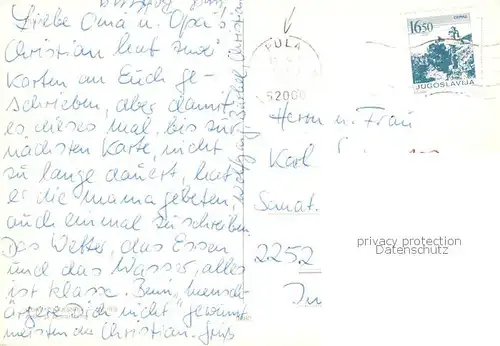 Liebe Oma u. Opa's
Christian hat zwei
Karten an Euch ge-
schrieben, aber damit
es dieses mal, bis zur
nächsten Karte, nicht
zu lange dauert, hat
er die Mama gebeten,
auch einmal zu schreiben.
Das Wetter, das Essen
und das Wasser, alles
ist klasse. Beim "Mensch-
ärgere Dich nicht" gewinnt
meistens der Christian. Gruß
Wolfgang, Bärbel, Christian
PULA
52000
16,50
JUGOSLAVIJA
Herrn u. Frau
Karl
Senat.
2252
privacy protection
Datenschutz